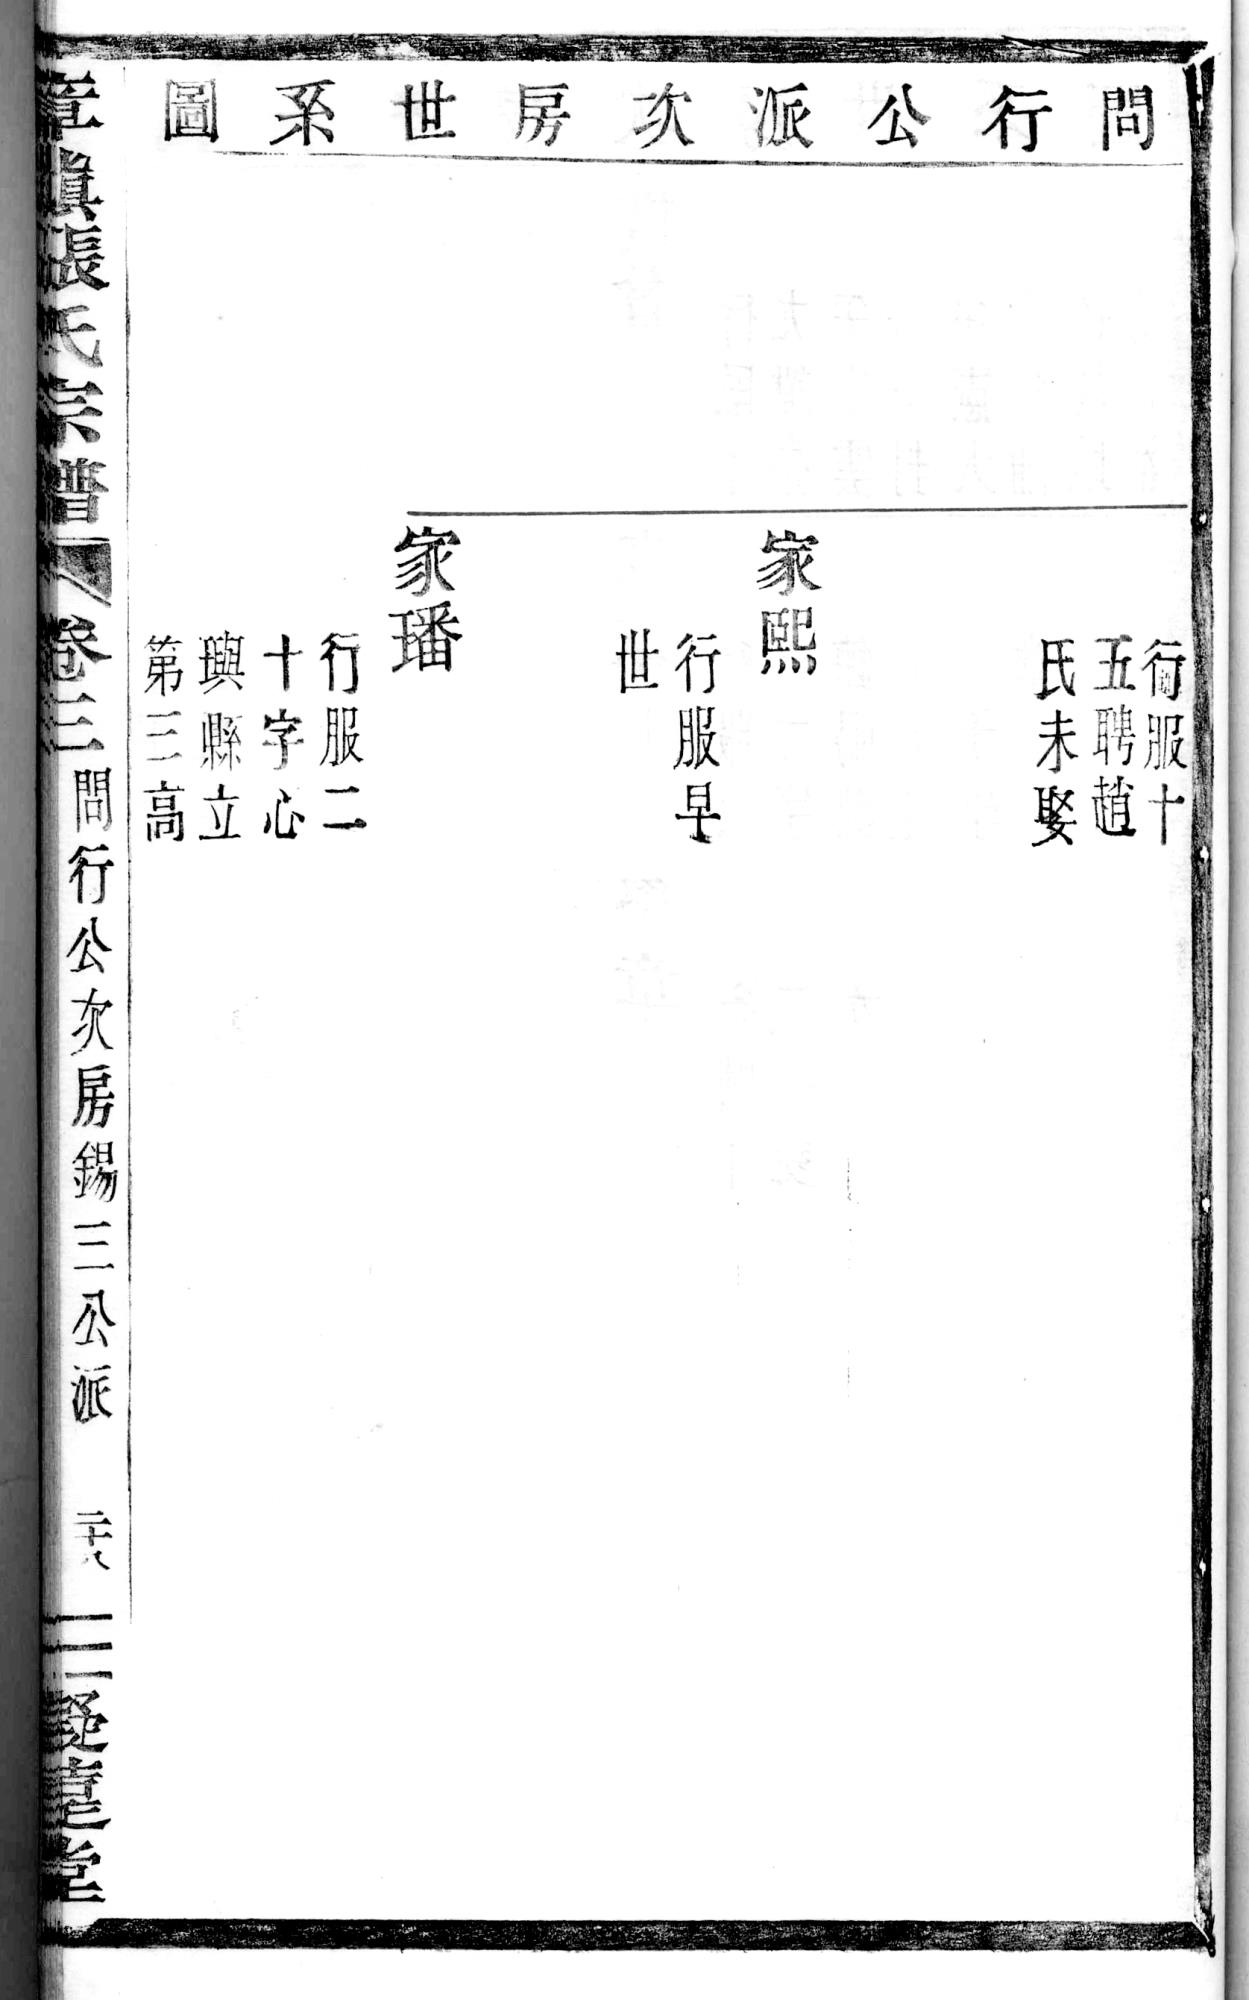 問行公派次房世系圖
行服十
五聘趙
氏未娶
家熙
行服早
世
家璠
行服二
十字心
輿縣立
第三高
章鎮張氏宗譜
卷三
問行公次房錫三公派
二十八
堂